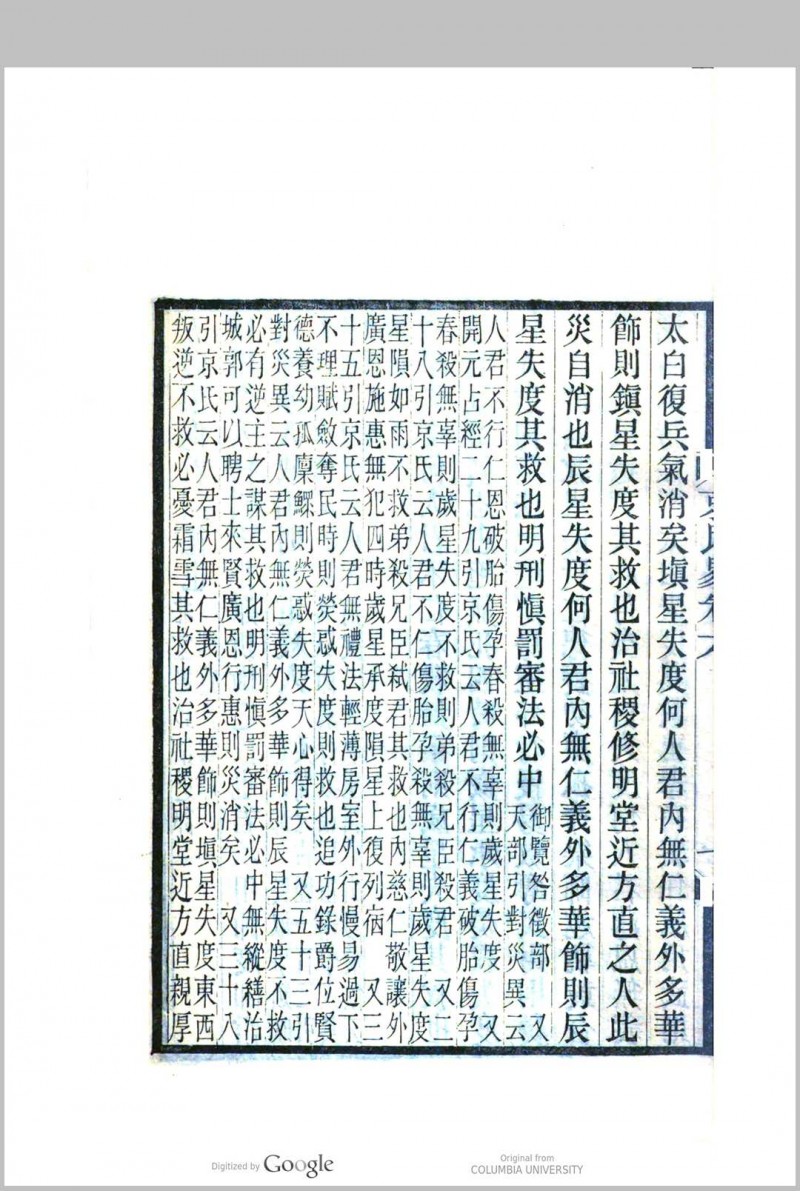 太白復兵氣消矣塡星失度何人君內無仁義外多華
飾則鎭星失度其救也治社稷修明堂近方直之人此
災自消也辰星失度何人君內無仁義外多華飾則辰
星失度其救也明刑愼罰審法必中
御覽咎徵部　又
天部引對災異云
人君不行仁恩破胎傷孕春殺無辜則歲星失度　又
開元占經二十九引京氏云人君不行仁義破胎傷孕
春殺無辜則歲星失度不救則弟殺兄臣殺君　又二
十八引京氏云人君不仁傷胎孕殺無辜則歲星失度
星隕如雨不救弟殺兄臣弒君其救也內慈仁敬讓外
廣恩施惠無犯四時歲星承度隕星上復列宿　又三
十五引京氏云人君無禮法輕薄房室外行慢易過下
不理賦斂奪民時則熒惑失度則救也追功錄爵位賢
德養幼孤廩鰥則熒惑失度天心得矣　又五十三引
對災異云人君內無仁義外多華飾則辰星失度不救
必有逆主之謀其救也明刑愼罰審法必中無縱繕治
城郭可以聘士來賢廣恩行惠則災消矣　又三十八
引京氏云人君內無仁義外多華飾則塡星失度東西
叛逆不救必憂霜雪其救也治社稷明堂近方直親厚
Digitized by Google
Original from
COLUMBIA UNIVERSITY